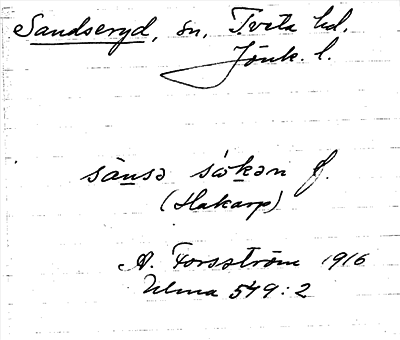 Sandseryd, sn, Tveta hd.
Jönk. l.
sànsə sò̀kən f.
(Hakarp)
A. Forsström 1916
Ulma 549:2